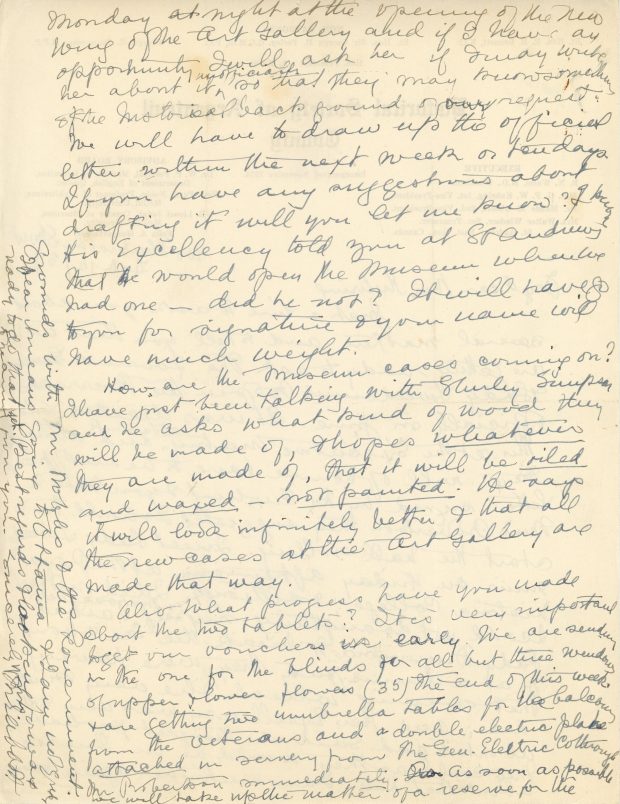 Monday at night at the opening of the new
wing of the Art Gallery and if I have an
opportunity I will ask her if I may write
her about it, unofficially so that they may know something
of the historical background of our request.
We will have to draw up the official
letter within the next week or ten days
If you have any suggestions about
drafting it will you let me know? I know
His Excellency told you at St Andrews
that he would open the Museum when we
had one — did he not? It will have to go
to you for signature & your name will
have much weight.
How are the Museum cases coming on?
I have just been talking with Shirley Simpson
and he asks what kind of wood they
will be made of, & hopes whatever
they are made of, that it will be oiled
and waxed — not painted. He says
it will look infinitely better & that all
the new cases at the Art Gallery are
made that way.
Also what progress have you made
about the two tablets? It is very important
to get our vouchers in early. We are sending
in the one for the blinds for all but three windows
of upper & lower floors (35) the end of this week
& are getting two umbrella tables for the balcony
from the Veterans and a double electric plate
attached in scenery from the Gen. Electric Co through
Mr Robertson immediately. As soon as possible
we will take up the matter of a reserve for the
grounds with Mr Nobles & the Government.
means going to Ottawa & I am not
ready to do that yet. Best regards & looking forward